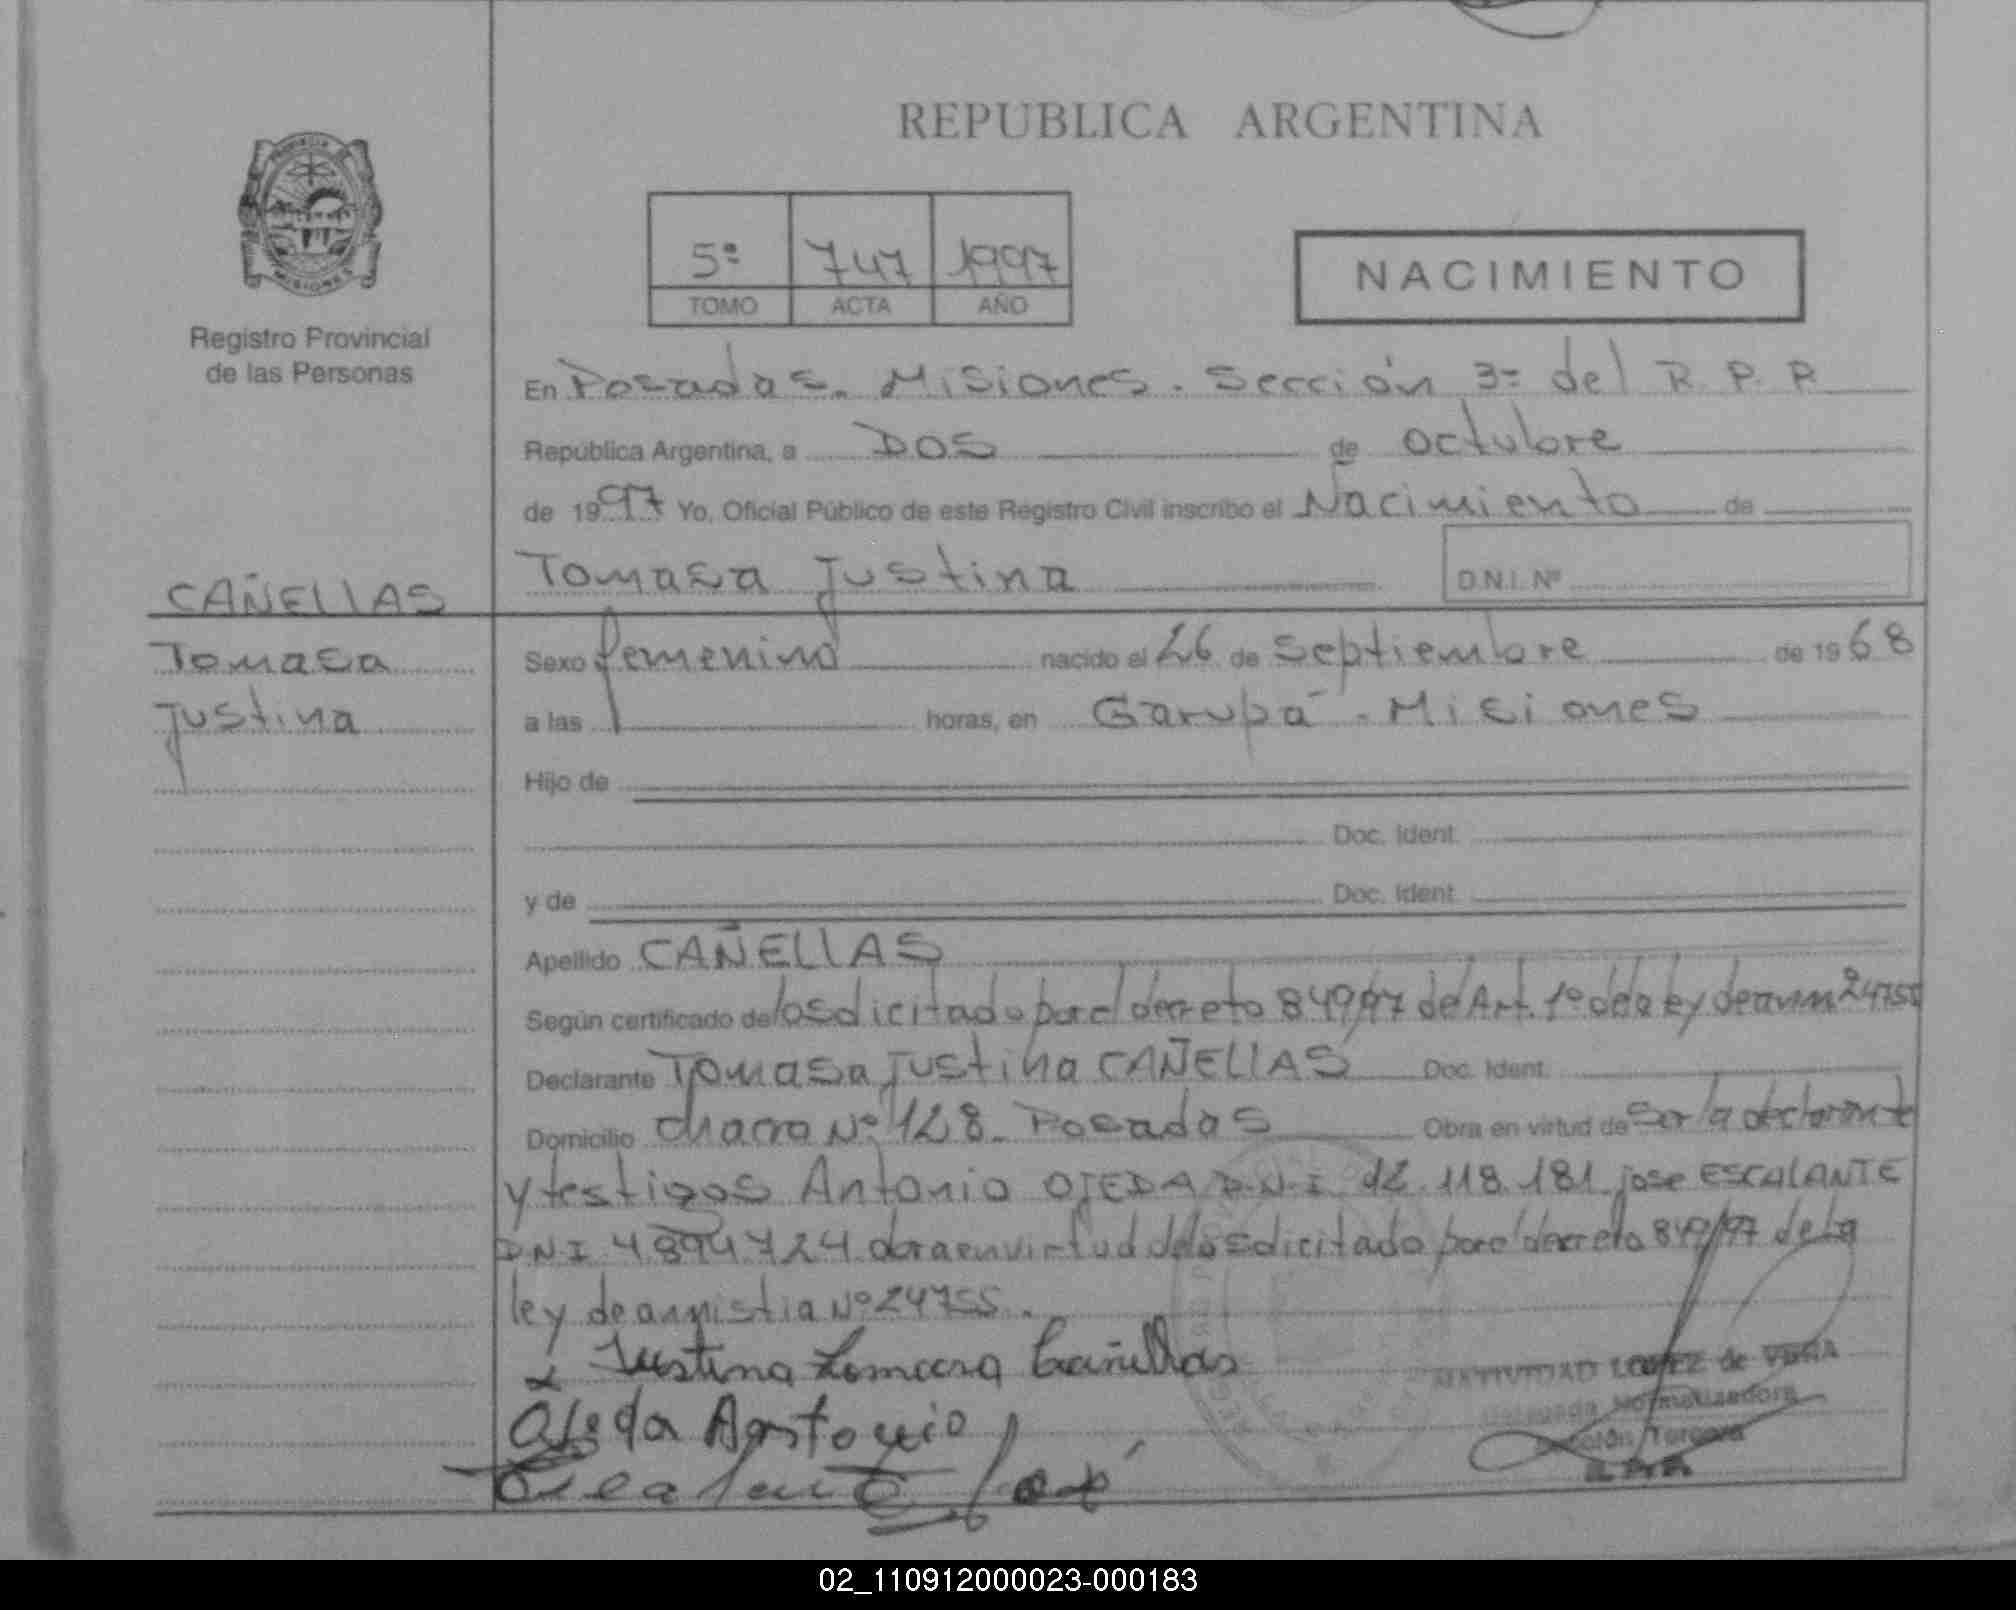 REPUBLICA ARGENTINA
5º 747 1997
TOMO ACTA AÑO
NACIMIENTO
MISIONES
Registro Provincial
de las Personas
En Posadas. Misiones. Sección 3º del R. P. P.
República Argentina, a DOS de octubre
de 1997 Yo, Oficial Público de este Registro Civil inscribo el Nacimiento de
Tomasa Justina D.N.I. Nº
CAÑELLAS
Tomasa
Justina
Sexo femenino nacido el 26 de septiembre de 1968
a las horas, en Garupá - Misiones
Hijo de
Doc. Ident.
y de Doc. Ident.
Apellido CAÑELLAS
Según certificado de lo solicitado por el decreto 849/97 del Art. 1º de la ley de 24755
Declarante Tomasa Justina CAÑELLAS Doc. Ident.
Domicilio chacra Nº 128 - Posadas Obra en virtud de Ser la declarante
y testigos Antonio OJEDA D.N.I. 12.118.181 Jose ESCALANTE
D.N.I 4894724 obra en virtud de lo solicitado por el decreto 849/97 de la
ley de amnistia Nº 24755.
x Justina Tomasa Cañellas
Ojeda Antonio
Escalante José
NATIVIDAD LOPEZ de VERA
Delegada Normalizadora
Sección Tercera
R.P.P.
02_110912000023-000183